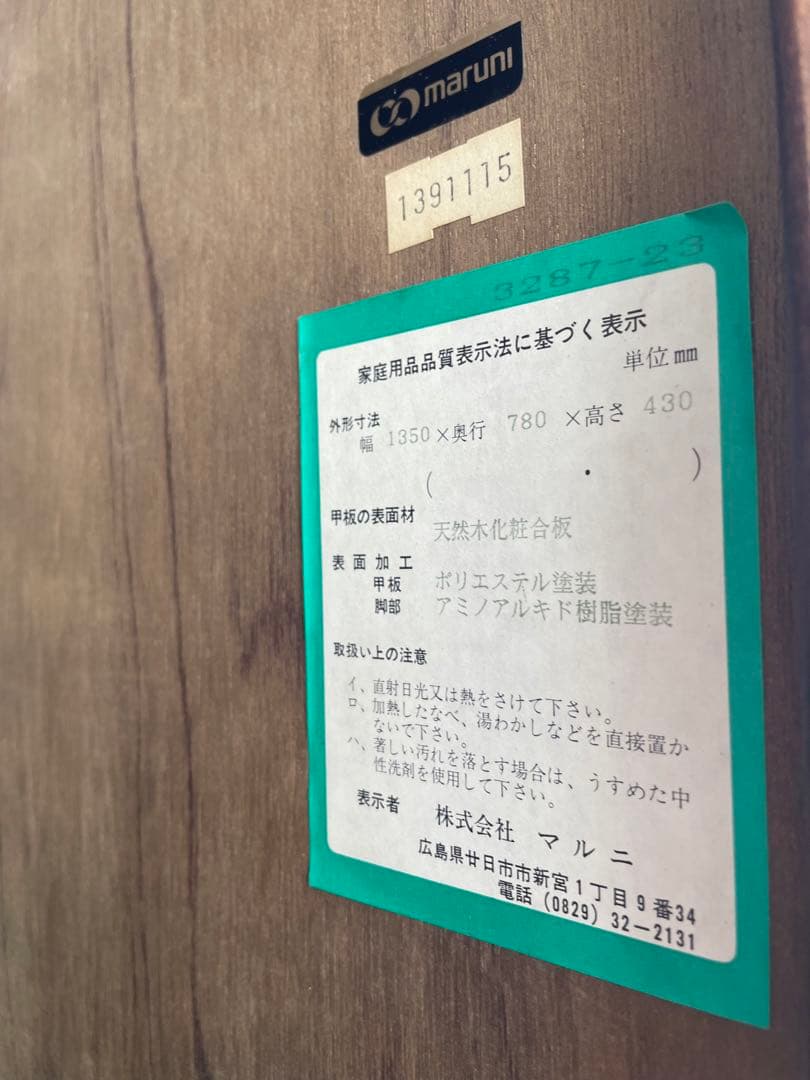 maruni
1391115
3287-23
家庭用品品質表示法に基づく表示
単位mm
外形寸法
幅 1350×奥行 780 ×高さ 430
( ・ )
甲板の表面材 天然木化粧合板
表面加工
甲板 ポリエステル塗装
脚部 アミノアルキド樹脂塗装
取扱い上の注意
イ、直射日光又は熱をさけて下さい。
ロ、加熱したなべ、湯わかしなどを直接置か
ないで下さい。
ハ、著しい汚れを落とす場合は、うすめた中
性洗剤を使用して下さい。
表示者 株式会社 マルニ
広島県廿日市市新宮1丁目9番34
電話(0829)32-2131